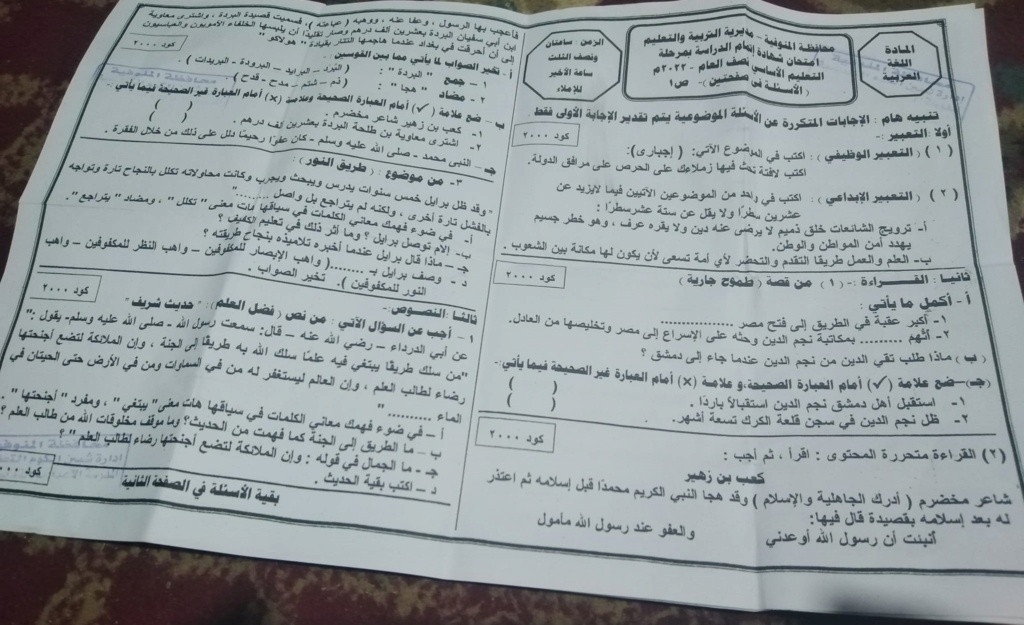 المادة
اللغة
العربية
محافظة المنوفية – مديرية التربية والتعليم
امتحان شهادة إتمام الدراسة بمرحلة
التعليم الأساسي نصف العام – ٢٠٢٣م
(الأسئلة في صفحتين) – ص١
الزمن: ساعتان
ونصف الثلث
ساعة الأخير
للإملاء
تنبيه هام : الإجابات المتكررة عن الأسئلة الموضوعية يتم تقدير الإجابة الأولى فقط
أولا: التعبير :-
كود ٢٠٠٠
(١) (التعبير الوظيفي) : اكتب في الموضوع الآتي: (إجباري):
اكتب لافتة تحث فيها زملاءك على الحرص على مرافق الدولة.
(٢) (التعبير الإبداعي) : اكتب في واحد من الموضوعين الآتيين فيما لا يزيد عن
عشرين سطرًا ولا يقل عن ستة عشر سطرًا :
أ- ترويج الشائعات خلق ذميم لا يرضى عنه دين ولا يقره عرف ، وهو خطر جسيم
يهدد أمن المواطن والوطن.
ب- العلم والعمل طريقا التقدم والتحضر لأي أمة تسعى لأن يكون لها مكانة بين الشعوب .
ثانيا : القراءة :- (١) من قصة (طموح جارية)
كود ٢٠٠٠
أ - أكمل ما يأتي :
١- أكبر عقبة في الطريق إلى فتح مصر ..............
٢- اتُّهم ......... بمكاتبة نجم الدين وحثه على الإسراع إلى مصر وتخليصها من العادل.
(ب) ماذا طلب تقي الدين من نجم الدين عندما جاء إلى دمشق ؟
(جـ)-ضع علامة (✓) أمام العبارة الصحيحة،وعلامة (x) أمام العبارة غير الصحيحة فيما يأتي:-
١- استقبل أهل دمشق نجم الدين استقبالاً باردًا. ( )
٢- ظل نجم الدين في سجن قلعة الكرك تسعة أشهر. ( )
كود ٢٠٠٠
(٢) القراءة متحررة المحتوى : اقرأ ، ثم أجب :
كعب بن زهير
شاعر مخضرم (أدرك الجاهلية والإسلام) وقد هجا النبي الكريم محمدًا قبل إسلامه ثم اعتذر
له بعد إسلامه بقصيدة قال فيها:
أنبئت أن رسول الله أوعدني والعفو عند رسول الله مأمول
فأعجب بها الرسول ، وعفا عنه ، ووهبه (عباءته) ، فسميت قصيدة البردة ، واشترى معاوية
ابن أبي سفيان البردة بعشرين ألف درهم وصار تقليدًا أن يلبسها الخلفاء الأمويون والعباسيون
إلى أن أحرقت في بغداد عندما هاجمها التتار بقيادة " هولاكو"
كود ٢٠٠٠
أ - تخير الصواب لما يأتي مما بين القوسين :
١ – جمع "البردة" : (البرد – البرايد – البرودة – البريدات) .
٢ – مضاد "هجا" : (ذم – شتم – مدح – قدح)
ب – ضع علامة (✓) أمام العبارة الصحيحة وعلامة (x) أمام العبارة غير الصحيحة فيما يأتي :-
١- كعب بن زهير شاعر مخضرم . ( )
٢- اشترى معاوية بن طلحة البردة بعشرين ألف درهم . ( )
جـ – النبي محمد - صلى الله عليه وسلم - كان عفوًا رحيمًا دلل على ذلك من خلال الفقرة .
كود ٢٠٠٠
٣- من موضوع : (طريق النور) :
"وقد ظل برايل خمس سنوات يدرس ويبحث ويجرب وكانت محاولاته تكلل بالنجاح تارة وتواجه
بالفشل تارة أخرى ، ولكنه لم يتراجع بل واصل ........."
أ- في ضوء فهمك معاني الكلمات في سياقها هات معنى "تكلل" ، ومضاد "يتراجع".
ب- إلام توصل برايل ؟ وما أثر ذلك في تعليم الكفيف ؟
جـ – ماذا قال برايل عندما أخبره تلاميذه بنجاح طريقته ؟
د - وصف برايل بـ ........( واهب الإبصار للمكفوفين – واهب النظر للمكفوفين – واهب
النور للمكفوفين ). تخير الصواب .
كود ٢٠٠٠
ثالثا: النصوص:-
١ – أجب عن السؤال الآتي : من نص (فضل العلم) : "حديث شريف"
عن أبي الدرداء – رضي الله عنه – قال: سمعت رسول الله - صلى الله عليه وسلم- يقول :"
"من سلك طريقًا يبتغي فيه علمًا سلك الله به طريقًا إلى الجنة ، وإن الملائكة لتضع أجنحتها
رضاء لطالب العلم ، وإن العالم ليستغفر له من في السماوات ومن في الأرض حتى الحيتان في
الماء .........."
أ – في ضوء فهمك معاني الكلمات في سياقها هات معنى" يبتغي" ، ومفرد " أجنحتها" .
ب – ما الطريق إلى الجنة كما فهمت من الحديث؟ وما موقف مخلوقات الله من طالب العلم ؟
جـ - ما الجمال في قوله : وإن الملائكة لتضع أجنحتها رضاء لطالب العلم "؟
د – اكتب بقية الحديث .
كود ٢٠٠٠
بقية الأسئلة في الصفحة الثانية